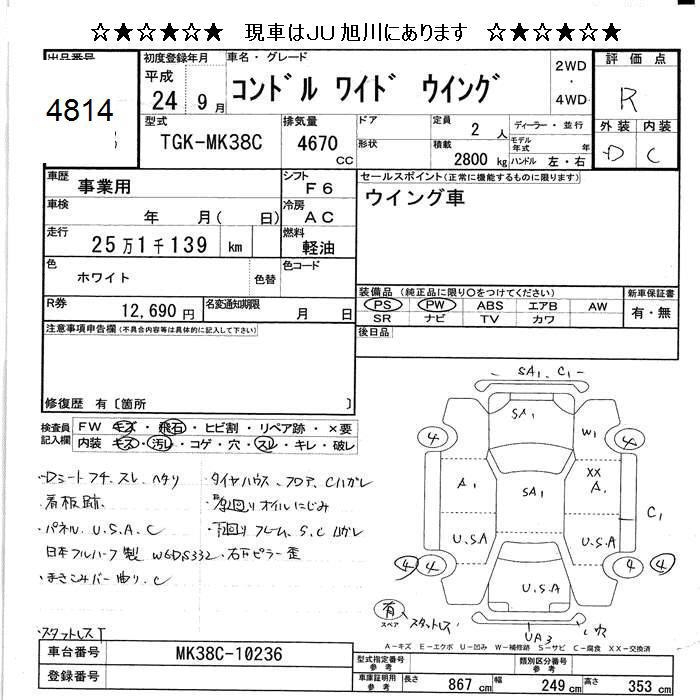 ☆★☆★☆★ 現車はJU旭川にあります ☆★☆★☆★
出品番号
4814
初度登録年月
平成
24 9月
車名・グレード
コンドル ワイド ウイング
2WD
・
4WD
評価点
R
外装 内装
D C
型式
TGK-MK38C
排気量
4670
CC
ドア
形状
定員 2 人
積載 2800 kg
ディーラー・並行
モデル年式 年
ハンドル 左・右
車歴 事業用
シフト F6
車検 年 月( 日)
冷房 AC
走行 25万1千139 km
燃料 軽油
色 ホワイト 色替
色コード
R券 12,690円
名変通知期限 月 日
セールスポイント(正常に機能するものに限ります)
ウイング車
装備品(純正品に限り○をつけてください)
PS PW ABS エアB AW
SR ナビ TV カワ
新車保証書
有・無
後日品
注意事項申告欄(不具合内容等は具体的に記入して下さい)
修復歴 有〔箇所 〕
検査員記入欄
FW キズ・飛石・ヒビ割・リペア跡・×要
内装 キズ・汚レ・コゲ・穴・スレ・キレ・破レ
・Dシートフチ、スレ、ヘタリ
・看板跡.
・パネル U.S.A.C
日本フルハーフ製 W6DS332
・まきこみバー曲り.C
・スタットレスT
・タイヤハウス、フロア、Cハガレ
・足回りオイルにじみ
・下回りフレーム、S.Cハガレ
・右下ピラー歪
SA1 C1
SA1
4
4
W1
A1
SA1
XX
A1
C1
U.S.A
U.S.A
4 4
4 4
U.S.A
UA3
有
スペア
スタットレス
A-キズ E-エクボ U-凹み W-補修跡 S-サビ C-腐食 XX-交換済
車台番号 MK38C-10236
登録番号
型式指定番号 参考
類別区分番号 参考
車庫証明用 参考
長さ 867 cm
幅 249 cm
高さ 353 cm